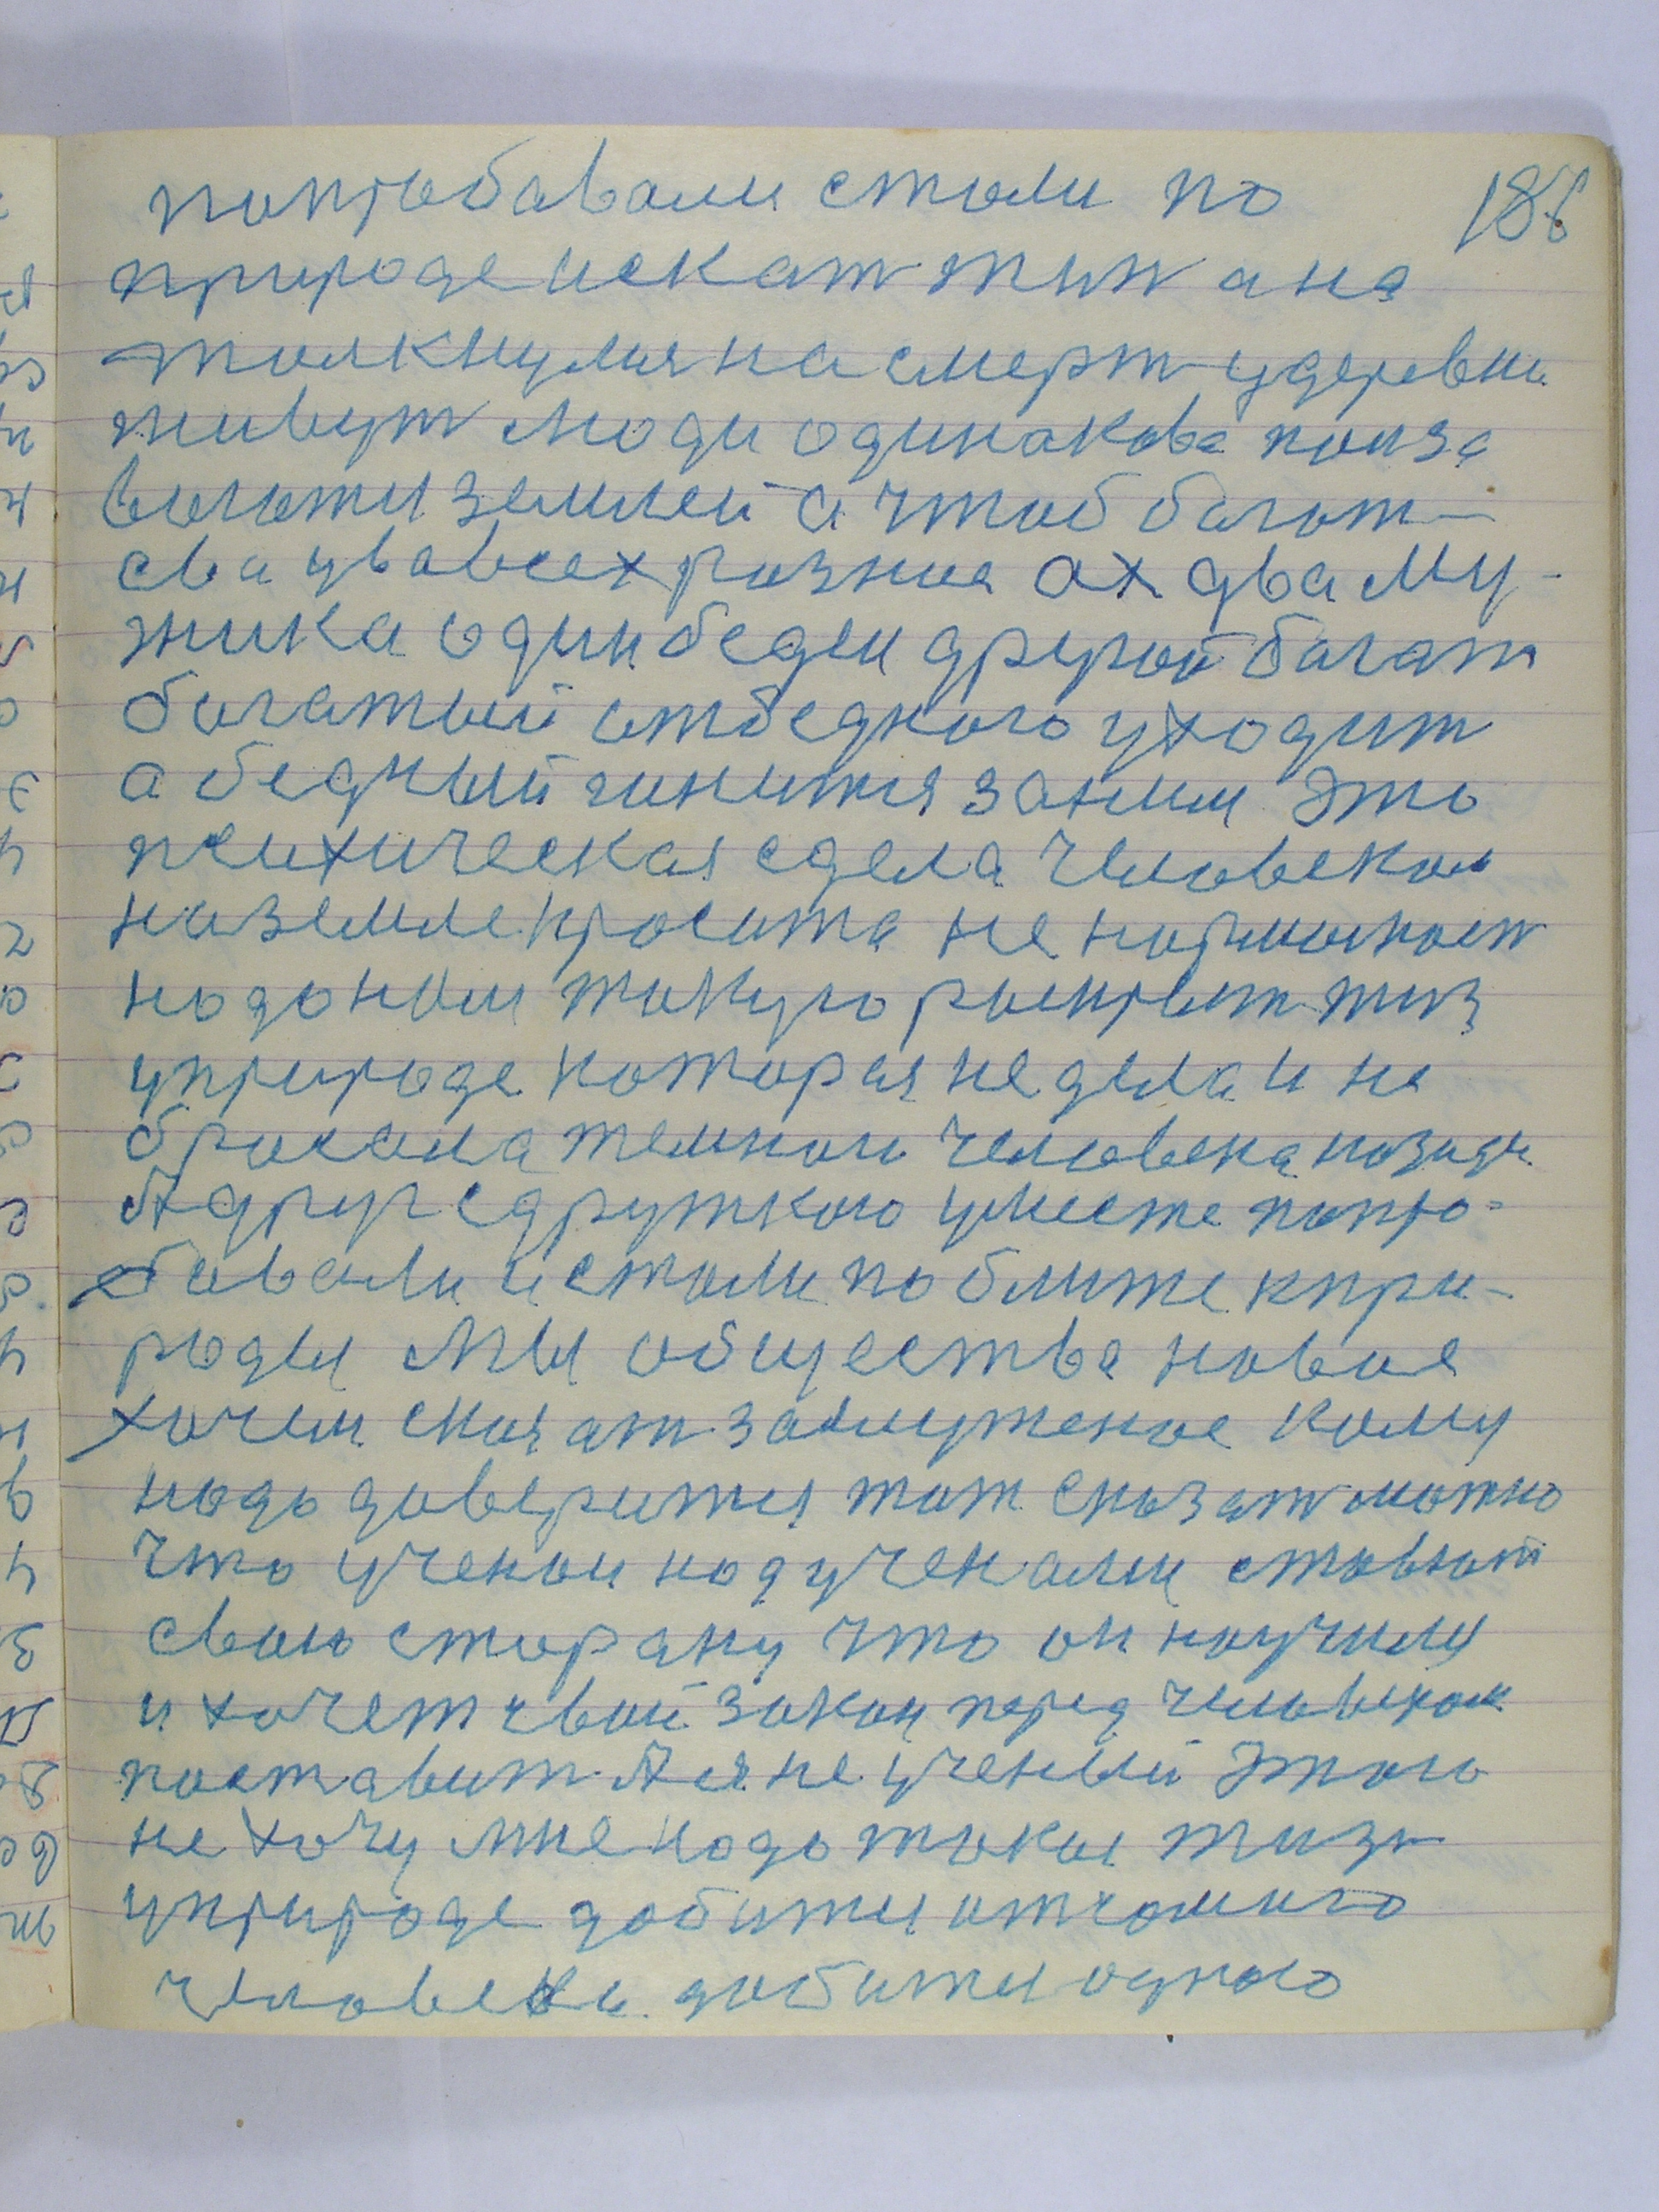 попробавали стали по 186
природе искат жизн а не
толкнулися на смерт у деревни
живут люди одинакова
землей а чтоб багат-
сва у вовсех разное ох два му-
жика один беден другой багат
багатый отбедного уходит
а бедный гонится заним это
психическая сдела человеком
наземле просита не нормальност
надо нам такую жиз
уприроде которая не дела и не
бросала темного человека позади
А друг сдружкою уместе попро-
бавали и стали поближе кпри-
роды мы общества новое
хочем сказат заслуженое кому
надо доверится так сказат можно
что ученои над ученами ставют
свою сторану что он научился
и хочет свой закон перед человеком
поставит А я не ученый этого
не хочу мне надо такая жизн
уприроде добится отсамого
человека добится одного